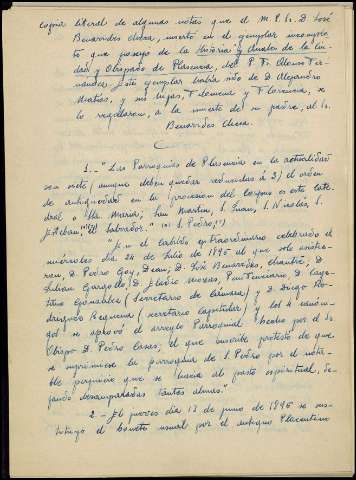 copia literal de algunas notas que el M. I. Sr. D. José
Benavides Checa, insertó en el ejemplar incomple-
to que poseyó de la Historia y Anales de la Ciu-
dad y Obispado de Plasencia, del P. Fr. Alonso Fer-
nández. Este ejemplar había sido de D. Alejandro
Matías, y sus hijas, Filomena y Florencia, se
lo regalaron, a la muerte de su padre, al Sr.
Benavides Checa.
1.- "Las Parroquias de Plasencia en la actualidad
son siete (aunque deben quedar reducidas a 2) el orden
de antigüedad en la procesión del Corpus es este: cate-
dral o Sta. María; San Martín, S. Juan, S. Nicolás, S.
Esteban, El Salvador, S. Pedro,
"En el Cabildo extraordinario celebrado el
miércoles día 24 de Julio de 1895 al que solo asistie-
ron, D. Pedro Gay, Dean; D. José Benavides, Chantre; D.
Julian Garzado; D. Eladio Mozas, Penitenciario; D. Caye-
tano González (Secretario de Cámara) y D. Diego Ro-
dríguez Requena (secretario capitular) y los 4 canóni-
gos se aprobó el arreglo Parroquial hecho por el Sr.
Obispo D. Pedro Casas; el que suscribe protestó de que
se suprimiese la parroquia de S. Pedro por el nota-
ble perjuicio que se hacía al pasto espiritual, de-
jando desamparadas tantas almas."
2.- El jueves día 13 de junio de 1895 se sus-
tituyó el bonete usual por el antiguo Placentino